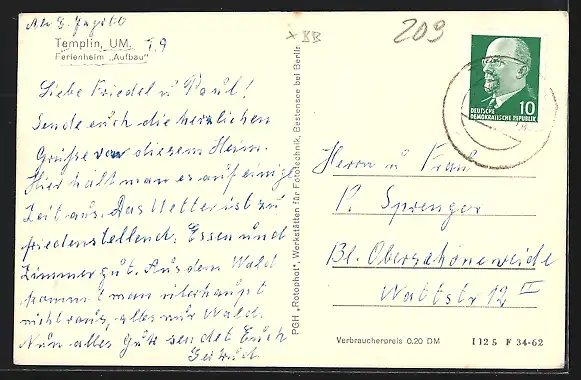 209
Templin, UM.
Ferienheim „Aufbau“
Liebe Friedel u Paul!
Sende euch die herzlichen
Grüße von diesem Heim.
Hier hält man es auf einige
Zeit aus. Das Wetter ist zu
friedenstellend. Essen und
Zimmer gut. Aus dem Wald
kommt man überhaupt
nicht raus, alles nur Wald.
Nun alles Gute sendet Euch
Gertrud
PGH „Rotophot“, Werkstätten für Fototechnik, Bestensee bei Berlin
10
DEUTSCHE
DEMOKRATISCHE REPUBLIK
Herrn u Frau
P. Sprenger
Bl. Oberschöneweide
Wattstr 12 II
Verbraucherpreis 0.20 DM
I 12 5 F 34-62